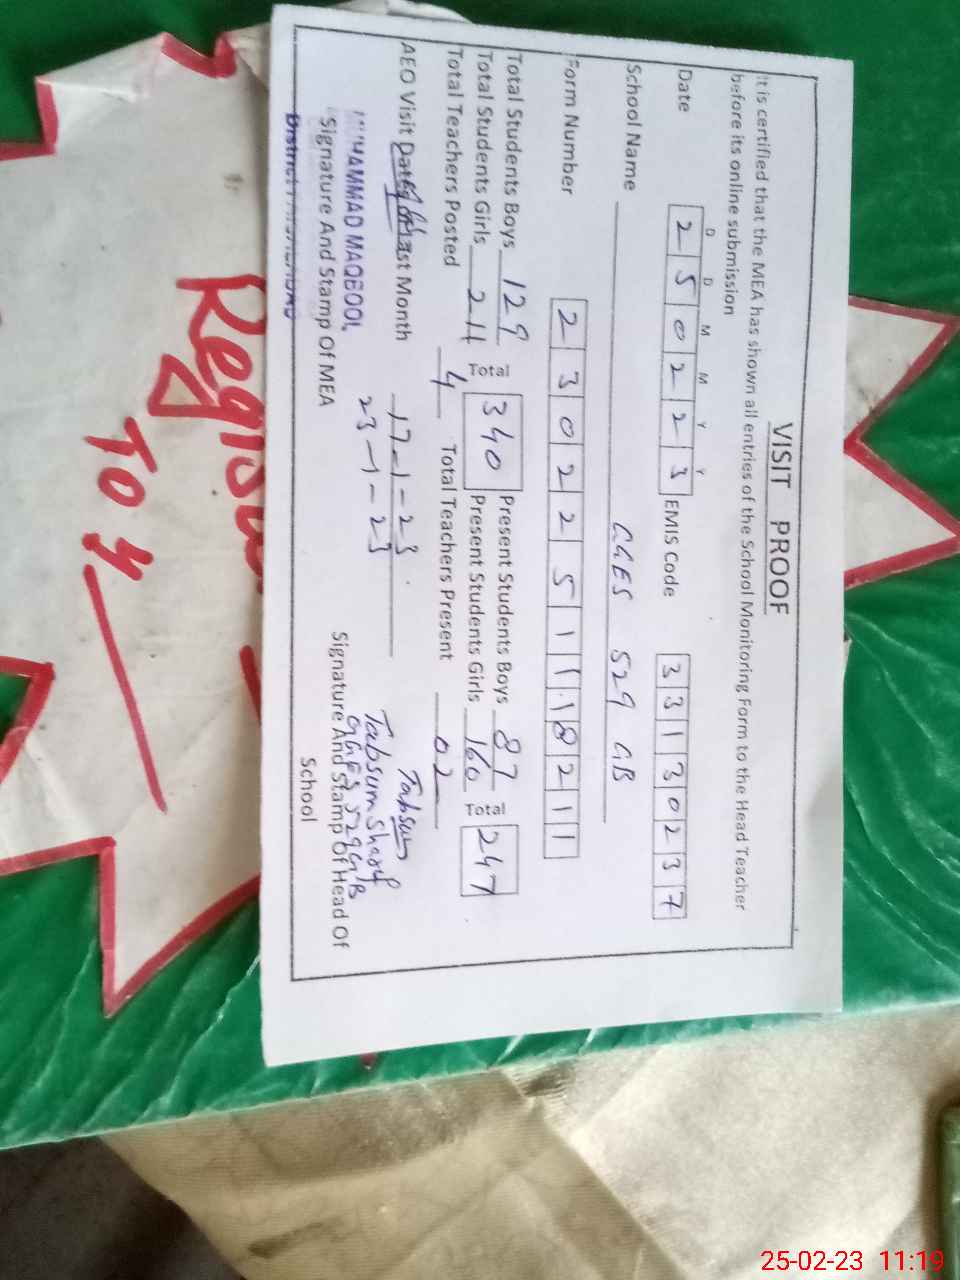 VISIT PROOF
It is certified that the MEA has shown all entries of the School Monitoring Form to the Head Teacher
before its online submission
D D M M Y Y
Date 2 5 0 2 2 3 EMIS Code 3 3 1 3 0 2 3 7
School Name GGES 529 GB
Form Number 2 3 0 2 2 5 1 1 1 8 2 1 1
Total Students Boys 129 Total 340 Present Students Boys 87 Total 247
Total Students Girls 211 Present Students Girls 160
Total Teachers Posted 4 Total Teachers Present 02
AEO Visit Dates Last Month 17-1-23
23-1-23
Tabsum
Tabsum Sharif
GGES 529 G/B
MUHAMMAD MAQBOOL
Signature And Stamp Of MEA
District FAISALABAD
Signature And Stamp Of Head Of
School
Regis
To 4
25-02-23 11:19